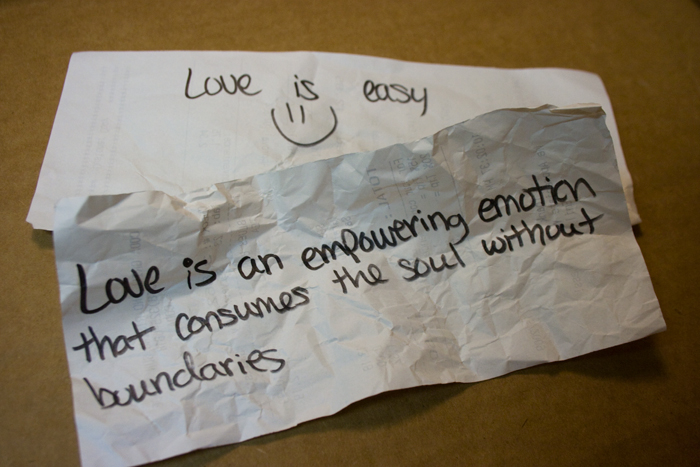 Love is easy
Love is an empowering emotion
that consumes the soul without
boundaries